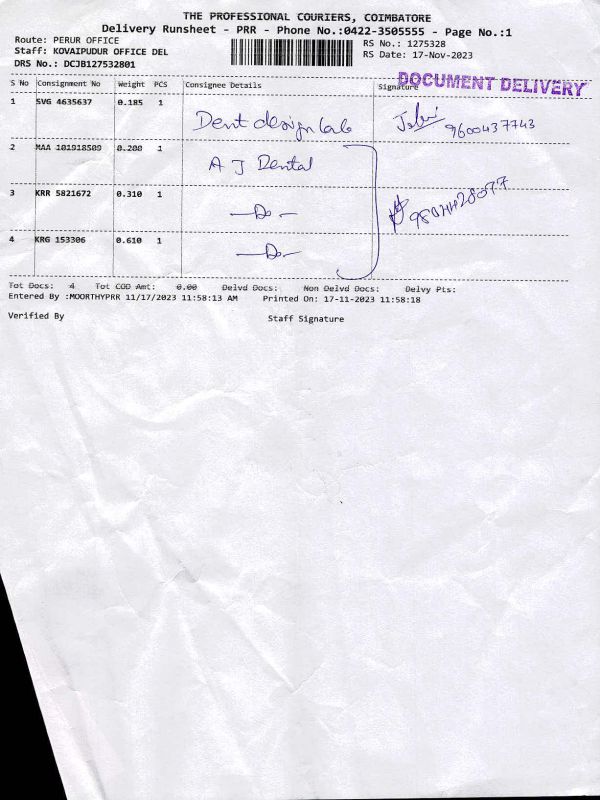 THE PROFESSIONAL COURIERS, COIMBATORE
Delivery Runsheet - PRR - Phone No.:0422-3505555 - Page No.:1
Route: PERUR OFFICE
RS No.: 1275328
Staff: KOVAIPUDUR OFFICE DEL
RS Date: 17-Nov-2023
DRS No.: DCJB127532801
DOCUMENT DELIVERY
S No Consignment No Weight PCS Consignee Details Signature
1 SVG 4635637 0.185 1
Dent design lab
9600437743
2 MAA 101918509 0.200 1
A J Dental
3 KRR 5821672 0.310 1
—Do—
4 KRG 153306 0.610 1
—Do—
Tot Docs: 4 Tot COD Amt: 0.00 Delvd Docs: Non Delvd Docs: Delvy Pts:
Entered By :MOORTHYPRR 11/17/2023 11:58:13 AM Printed On: 17-11-2023 11:58:18
Verified By Staff Signature